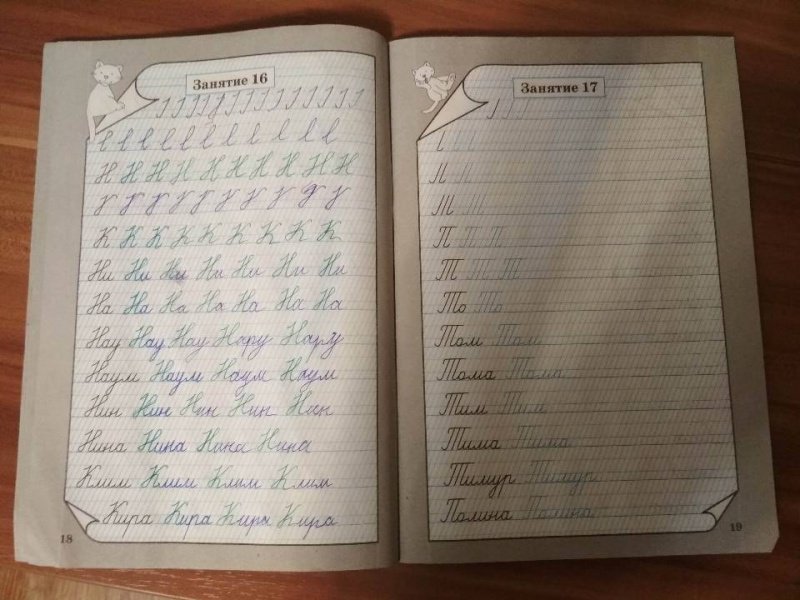 Занятие 16
Н Н Н Н Н Н Н Н Н Н
К К К К К К К К К
Ни Ни Ни Ни Ни Ни Ни
На На На На На На На
Нау Нау Нау Нару Нару
Наум Наум Наум Наум
Нин Нин Нин Нин Нин
Нина Нина Нина Нина
Клим Клим Клим Клим
Кира Кира Кира Кира
18
Занятие 17
П П П
Т Т Т
То То
Том Том
Тома Тома
Тим Тим
Тима Тима
Тимур Тимур
Полина Полина
19